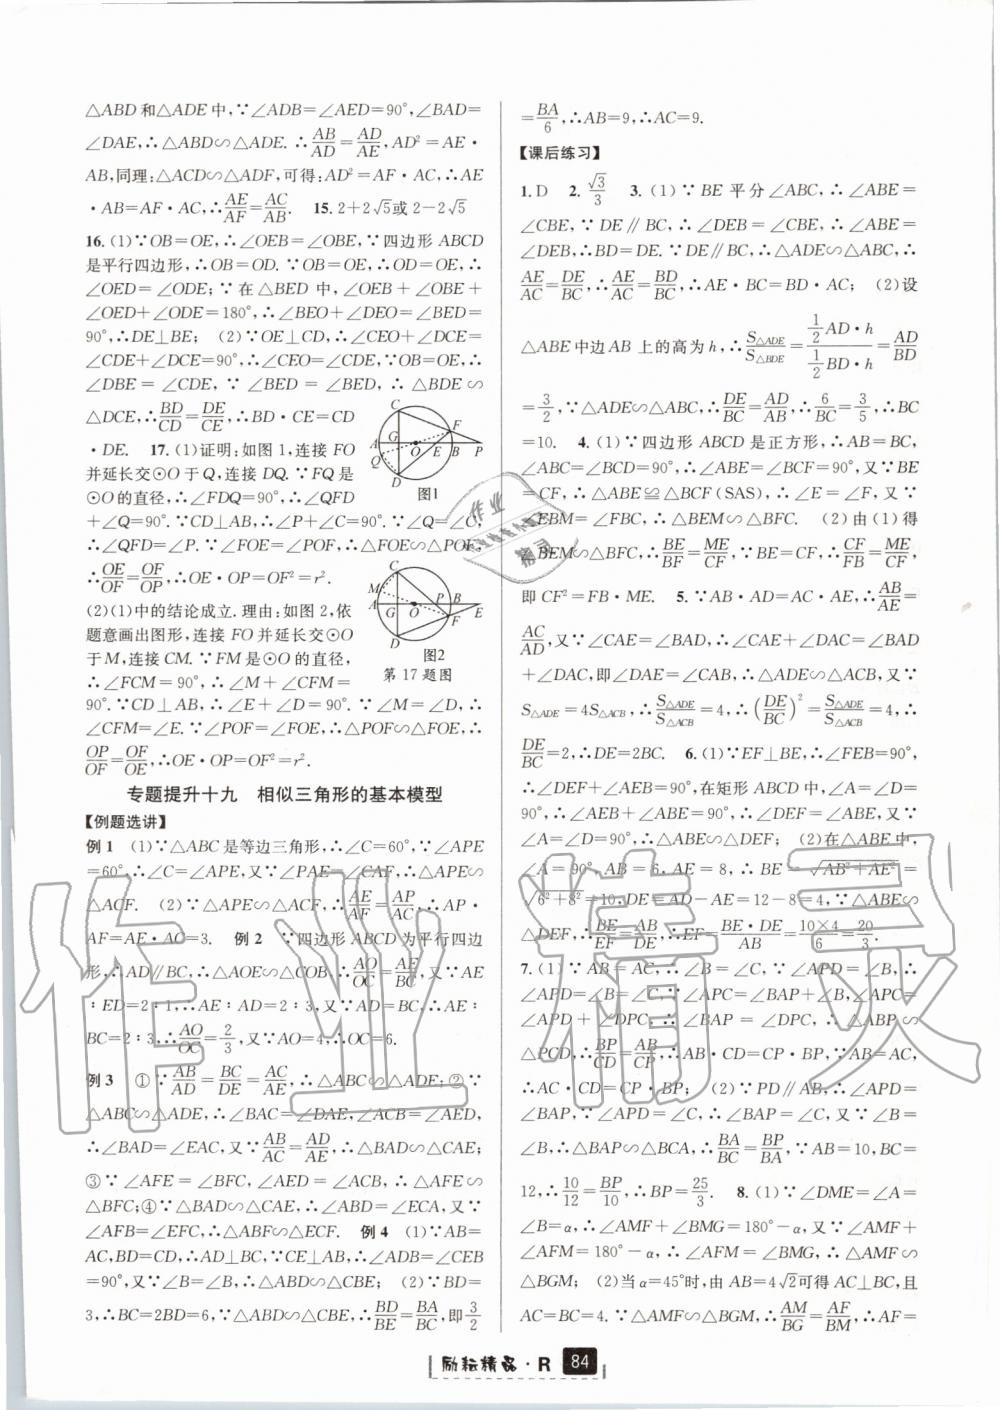 △ABD和△ADE中,∵∠ADB=∠AED=90°,∠BAD=
∠DAE,∴△ABD∽△ADE.∴AB/AD=AD/AE,AD²=AE·
AB,同理:△ACD∽△ADF,可得:AD²=AF·AC,∴AE
·AB=AF·AC,∴AE/AF=AC/AB. 15.2+2√5或2-2√5
16.(1)∵OB=OE,∴∠OEB=∠OBE,∵四边形ABCD
是平行四边形,∴OB=OD.∵OB=OE,∴OD=OE,∴
∠OED=∠ODE;∵在△BED中,∠OEB+∠OBE+
∠OED+∠ODE=180°,∴∠BEO+∠DEO=∠BED=
90°,∴DE⊥BE; (2)∵OE⊥CD,∴∠CEO+∠DCE=
∠CDE+∠DCE=90°,∴∠CEO=∠CDE,∵OB=OE,∴
∠DBE=∠CDE,∵∠BED=∠BED,∴△BDE∽
△DCE,∴BD/CD=DE/CE,∴BD·CE=CD
·DE. 17.(1)证明:如图1,连接FO
并延长交⊙O于Q,连接DQ.∵FQ是
⊙O的直径,∴∠FDQ=90°,∴∠QFD
+∠Q=90°.∵CD⊥AB,∴∠P+∠C=
90°.∵∠Q=∠C,
∴∠QFD=∠P.∵∠FOE=∠POF,∴△FOE∽△POF,
∴OE/OF=OF/OP,∴OE·OP=OF²=r².
(2)(1)中的结论成立.理由:如图2,依
题意画出图形,连接FO并延长交⊙O
于M,连接CM.∵FM是⊙O的直径,
∴∠FCM=90°,∴∠M+∠CFM=
90°.∵CD⊥AB,∴∠E+∠D=90°.∵∠M=∠D,∴
∠CFM=∠E.∵∠POF=∠FOE,∴△POF∽△FOE,∴
OP/OF=OF/OE,∴OE·OP=OF²=r².
C
F
A G O E B P
Q
D
图1
C
M
A G O P B E
F
D
图2
第17题图
专题提升十九 相似三角形的基本模型
【例题选讲】
例1 (1)∵△ABC是等边三角形,∴∠C=60°,∵∠APE
=60°,∴∠C=∠APE,又∵∠PAE=∠CAF,∴△APE∽
△ACF. (2)∵△APE∽△ACF,∴AE/AF=AP/AC,∴AP·
AF=AE·AC=3. 例2 ∵四边形ABCD为平行四边
形,∴AD∥BC,∴△AOE∽△COB,∴AO/OC=AE/BC,∵AE
:ED=2:1,∴AE:AD=2:3,又∵AD=BC,∴AE:
BC=2:3,∴AO/OC=2/3,又∵AO=4,∴OC=6.
例3 ①∵AB/AD=BC/DE=AC/AE,∴△ABC∽△ADE;②∵
△ABC∽△ADE,∴∠BAC=∠DAE,∠ACB=∠AED,
∴∠BAD=∠EAC,又∵AB/AC=AD/AE,∴△BAD∽△CAE;
③∵∠AFE=∠BFC,∠AED=∠ACB,∴△AFE∽
△BFC;④∵△BAD∽△CAE,∴∠ABD=∠ECA,又∵
∠AFB=∠EFC,∴△ABF∽△ECF. 例4 (1)∵AB=
AC,BD=CD,∴AD⊥BC,∵CE⊥AB,∴∠ADB=∠CEB
=90°,又∵∠B=∠B,∴△ABD∽△CBE; (2)∵BD=
3,∴BC=2BD=6,∵△ABD∽△CBE,∴BD/BE=BA/BC,即3/2
=BA/6,∴AB=9,∴AC=9.
【课后练习】
1.D 2.√3/3 3.(1)∵BE平分∠ABC,∴∠ABE=
∠CBE,∵DE∥BC,∴∠DEB=∠CBE,∴∠ABE=
∠DEB,∴BD=DE.∵DE∥BC,∴△ADE∽△ABC,∴
AE/AC=DE/BC,∴AE/AC=BD/BC,∴AE·BC=BD·AC; (2)设
△ABE中边AB上的高为h,∴S△ADE/S△BDE=(1/2 AD·h)/(1/2 BD·h)=AD/BD
=3/2,∵△ADE∽△ABC,∴DE/BC=AD/AB,∴6/BC=3/5,∴BC=
10. 4.(1)∵四边形ABCD是正方形,∴AB=BC,
∠ABC=∠BCD=90°,∴∠ABE=∠BCF=90°,又∵BE
=CF,∴△ABE≌△BCF(SAS),∴∠E=∠F,又∵
∠EBM=∠FBC,∴△BEM∽△BFC. (2)由(1)得
△BEM∽△BFC,∴BE/BF=ME/CF,∵BE=CF,∴CF/FB=ME/CF,
即CF²=FB·ME. 5.∵AB·AD=AC·AE,∴AB/AE=
AC/AD,又∵∠CAE=∠BAD,∴∠CAE+∠DAC=∠BAD
+∠DAC,即∠DAE=∠CAB,∴△ADE∽△ACB,又∵
S△ADE=4S△ACB,∴S△ADE/S△ACB=4,∴(DE/BC)²=S△ADE/S△ACB=4,∴
DE/BC=2,∴DE=2BC. 6.(1)∵EF⊥BE,∴∠FEB=90°,
∴∠DEF+∠AEB=90°,在矩形ABCD中,∠A=∠D=
90°,∴∠AEB+∠ABE=90°,∴∠DEF=∠ABE,又∵
∠A=∠D=90°,∴△ABE∽△DEF; (2)在△ABE中,
∠A=90°,AB=6,AE=8,∴BE=√AB²+AE²=
√6²+8²=10,DE=AD-AE=12-8=4,∵△ABE∽
△DEF,∴BE/EF=AB/DE,∴EF=BE·DE/AB=10×4/6=20/3.
7.(1)∵AB=AC,∴∠B=∠C,∵∠APD=∠B,∴
∠APD=∠B=∠C,∵∠APC=∠BAP+∠B,∠APC=
∠APD+∠DPC,∴∠BAP=∠DPC,∴△ABP∽
△PCD,∴BP/CD=AB/CP,∴AB·CD=CP·BP,∵AB=AC,
∴AC·CD=CP·BP; (2)∵PD∥AB,∴∠APD=
∠BAP,∵∠APD=∠C,∴∠BAP=∠C,又∵∠B=
∠B,∴△BAP∽△BCA,∴BA/BC=BP/BA,∵AB=10,BC=
12,∴10/12=BP/10,∴BP=25/3. 8.(1)∵∠DME=∠A=
∠B=α,∴∠AMF+∠BMG=180°-α,又∵∠AMF+
∠AFM=180°-α,∴∠AFM=∠BMG,∴△AMF∽
△BGM; (2)当α=45°时,由AB=4√2可得AC⊥BC,且
AC=BC=4.∵△AMF∽△BGM,∴AM/BG=AF/BM,∴AF=
励耘精品·R 84
作业精灵